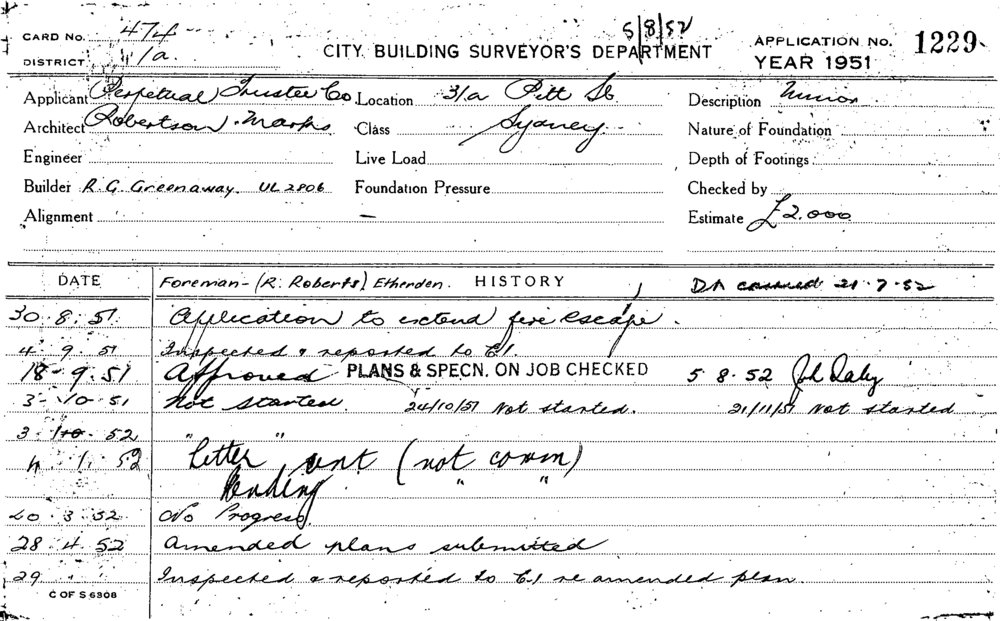 5/8/52
CARD No. 474
DISTRICT 1/a.
CITY BUILDING SURVEYOR'S DEPARTMENT
APPLICATION No. 1229
YEAR 1951
Applicant Perpetual Trustee Co Location 31a Pitt St. Description Minor
Architect Robertson. Marks Class Sydney Nature of Foundation
Engineer Live Load Depth of Footings
Builder R. G. Greenaway. UL 2806 Foundation Pressure Checked by
Alignment — Estimate £2.000
DATE Foreman - (R. Roberts) Etherden. HISTORY DA 21.7.52
30.8.51 Application to extend fire escape.
4.9.51 Inspected & reported to C.I.
18.9.51 Approved PLANS & SPECN. ON JOB CHECKED 5.8.52
3.10.51 Not started. 24/10/51 Not started. 21/11/51 Not started
3.1.52
4.1.52 "Letter" sent (not comm)
Pending " "
20.3.52 No Progress.
28.4.52 Amended plans submitted
29 " Inspected & reported to C.I re amended plan.
C OF S 6308